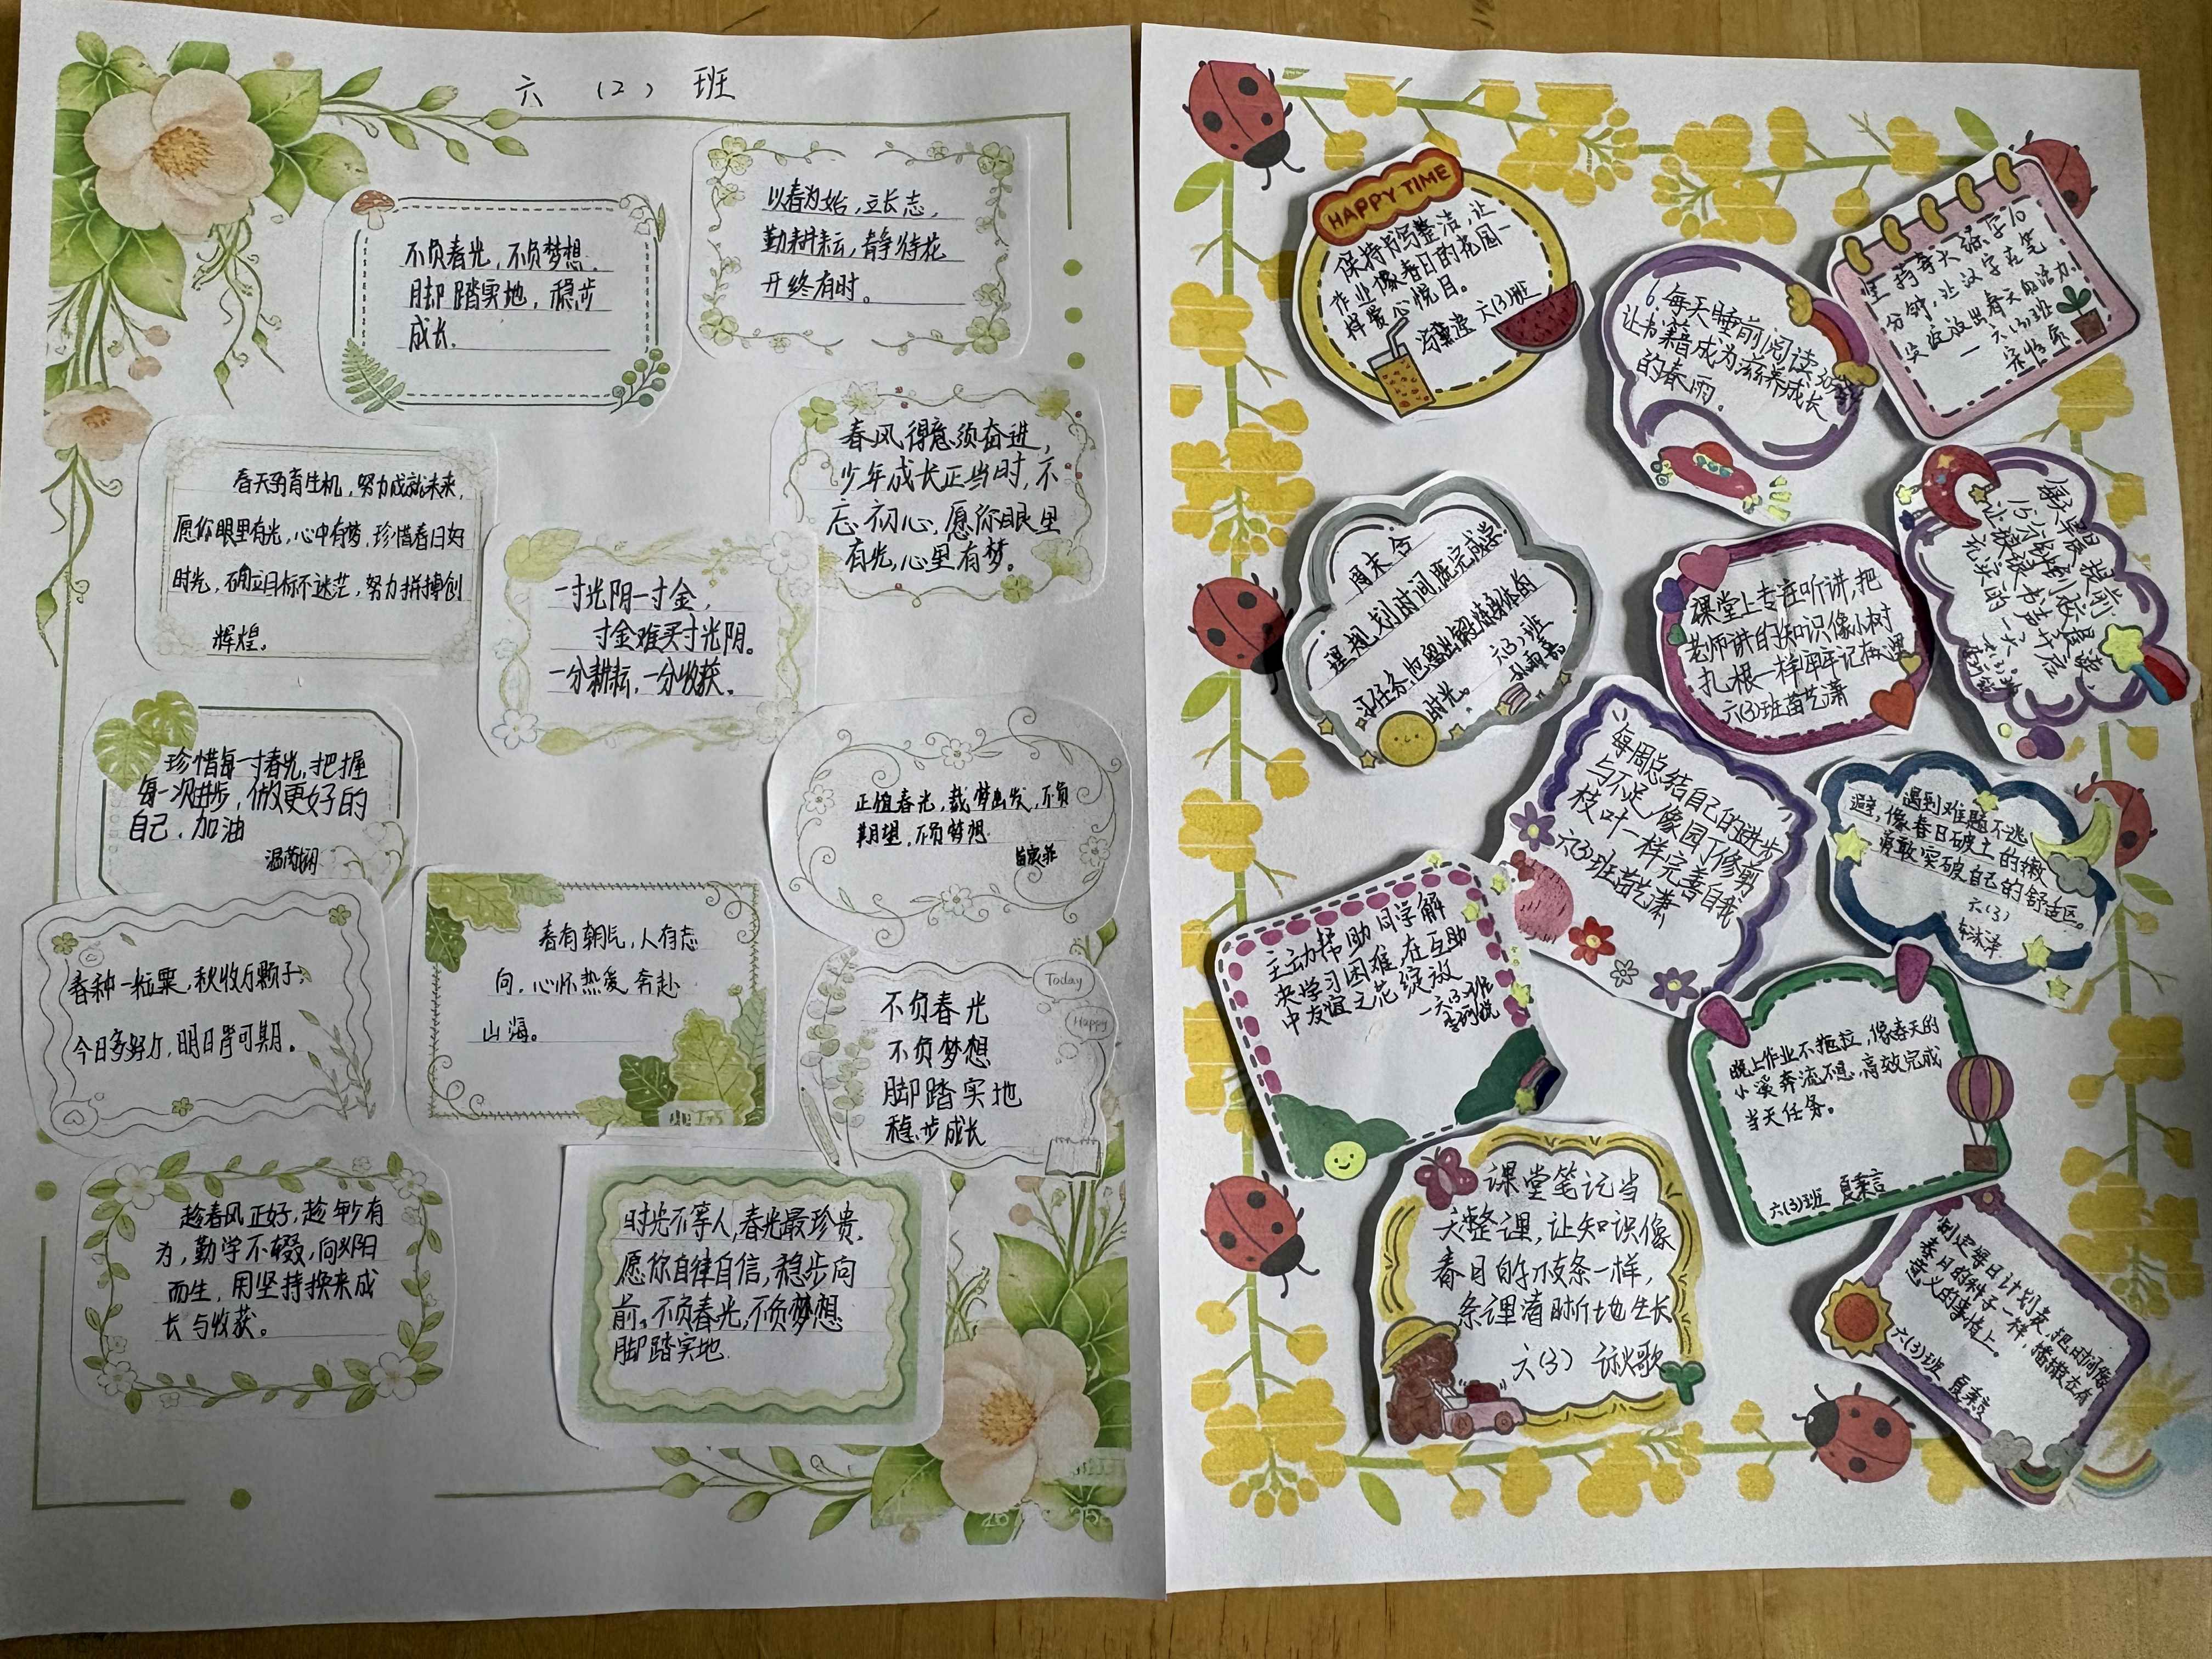 六（2）班
不负春光，不负梦想.
脚踏实地，稳步
成长.
以春为始，立长志，
勤耕耘，静待花
开终有时。
春天孕育生机，努力成就未来，
愿你眼里有光，心中有梦，珍惜春日好
时光，确立目标不迷茫，努力拼搏创
辉煌。
春风得意须奋进，
少年成长正当时，不
忘初心，愿你眼里
有光，心里有梦。
一寸光阴一寸金，
寸金难买寸光阴。
一分耕耘，一分收获。
珍惜每一寸春光，把握
每一次进步，做更好的
自己，加油
正值春光，载梦出发，不负
期望，不负梦想.
春种一粒粟，秋收万颗子；
今日多努力，明日皆可期。
春有朝气，人有志
向，心怀热爱，奔赴
山海。
Today
Happy
不负春光
不负梦想
脚踏实地
稳步成长
趁春风正好，趁年少有
为，勤学不辍，向阳
而生，用坚持换来成
长与收获。
时光不等人，春光最珍贵，
愿你自律自信，稳步向
前。不负春光，不负梦想
脚踏实地.
HAPPY TIME
保持书写整洁，让
作业像春日的花园一
样赏心悦目。
六(3)班
6.每天睡前阅读30分钟
让书籍成为滋养成长
的春雨。
坚持每天练字10
分钟，让汉字在笔
尖绽放出春天的活力。
一六(3)班
周末合
理规划时间既完成学
习任务,也留出锻炼身体的
时光。
六(3)班
课堂上专注听讲，把
老师讲的知识像小树
扎根一样牢牢记在心里
六(3)班苗艺潇
每天早晨提前
15分钟到校晨读，
让琅琅书声开启
充实的一天
每周总结自己的进步
与不足，像园丁修剪
枝叶一样完善自我
六(3)班苗艺潇
遇到难题不逃
避，像春日破土的嫩
芽勇敢突破自己的舒适区。
六(3)
主动帮助同学解
决学习困难，在互助
中友谊之花绽放
一六(3)班
晚上作业不拖拉，像春天的
小溪奔流不息，高效完成
当天任务。
六(3)班 夏秉言
课堂笔记当
天整理，让知识像
春日的枝条一样，
条理清晰地生长
六(3)
制定每日计划表，把时间像
春日的种子一样，播撒在有
意义的事情上。
六(3)班 夏秉言